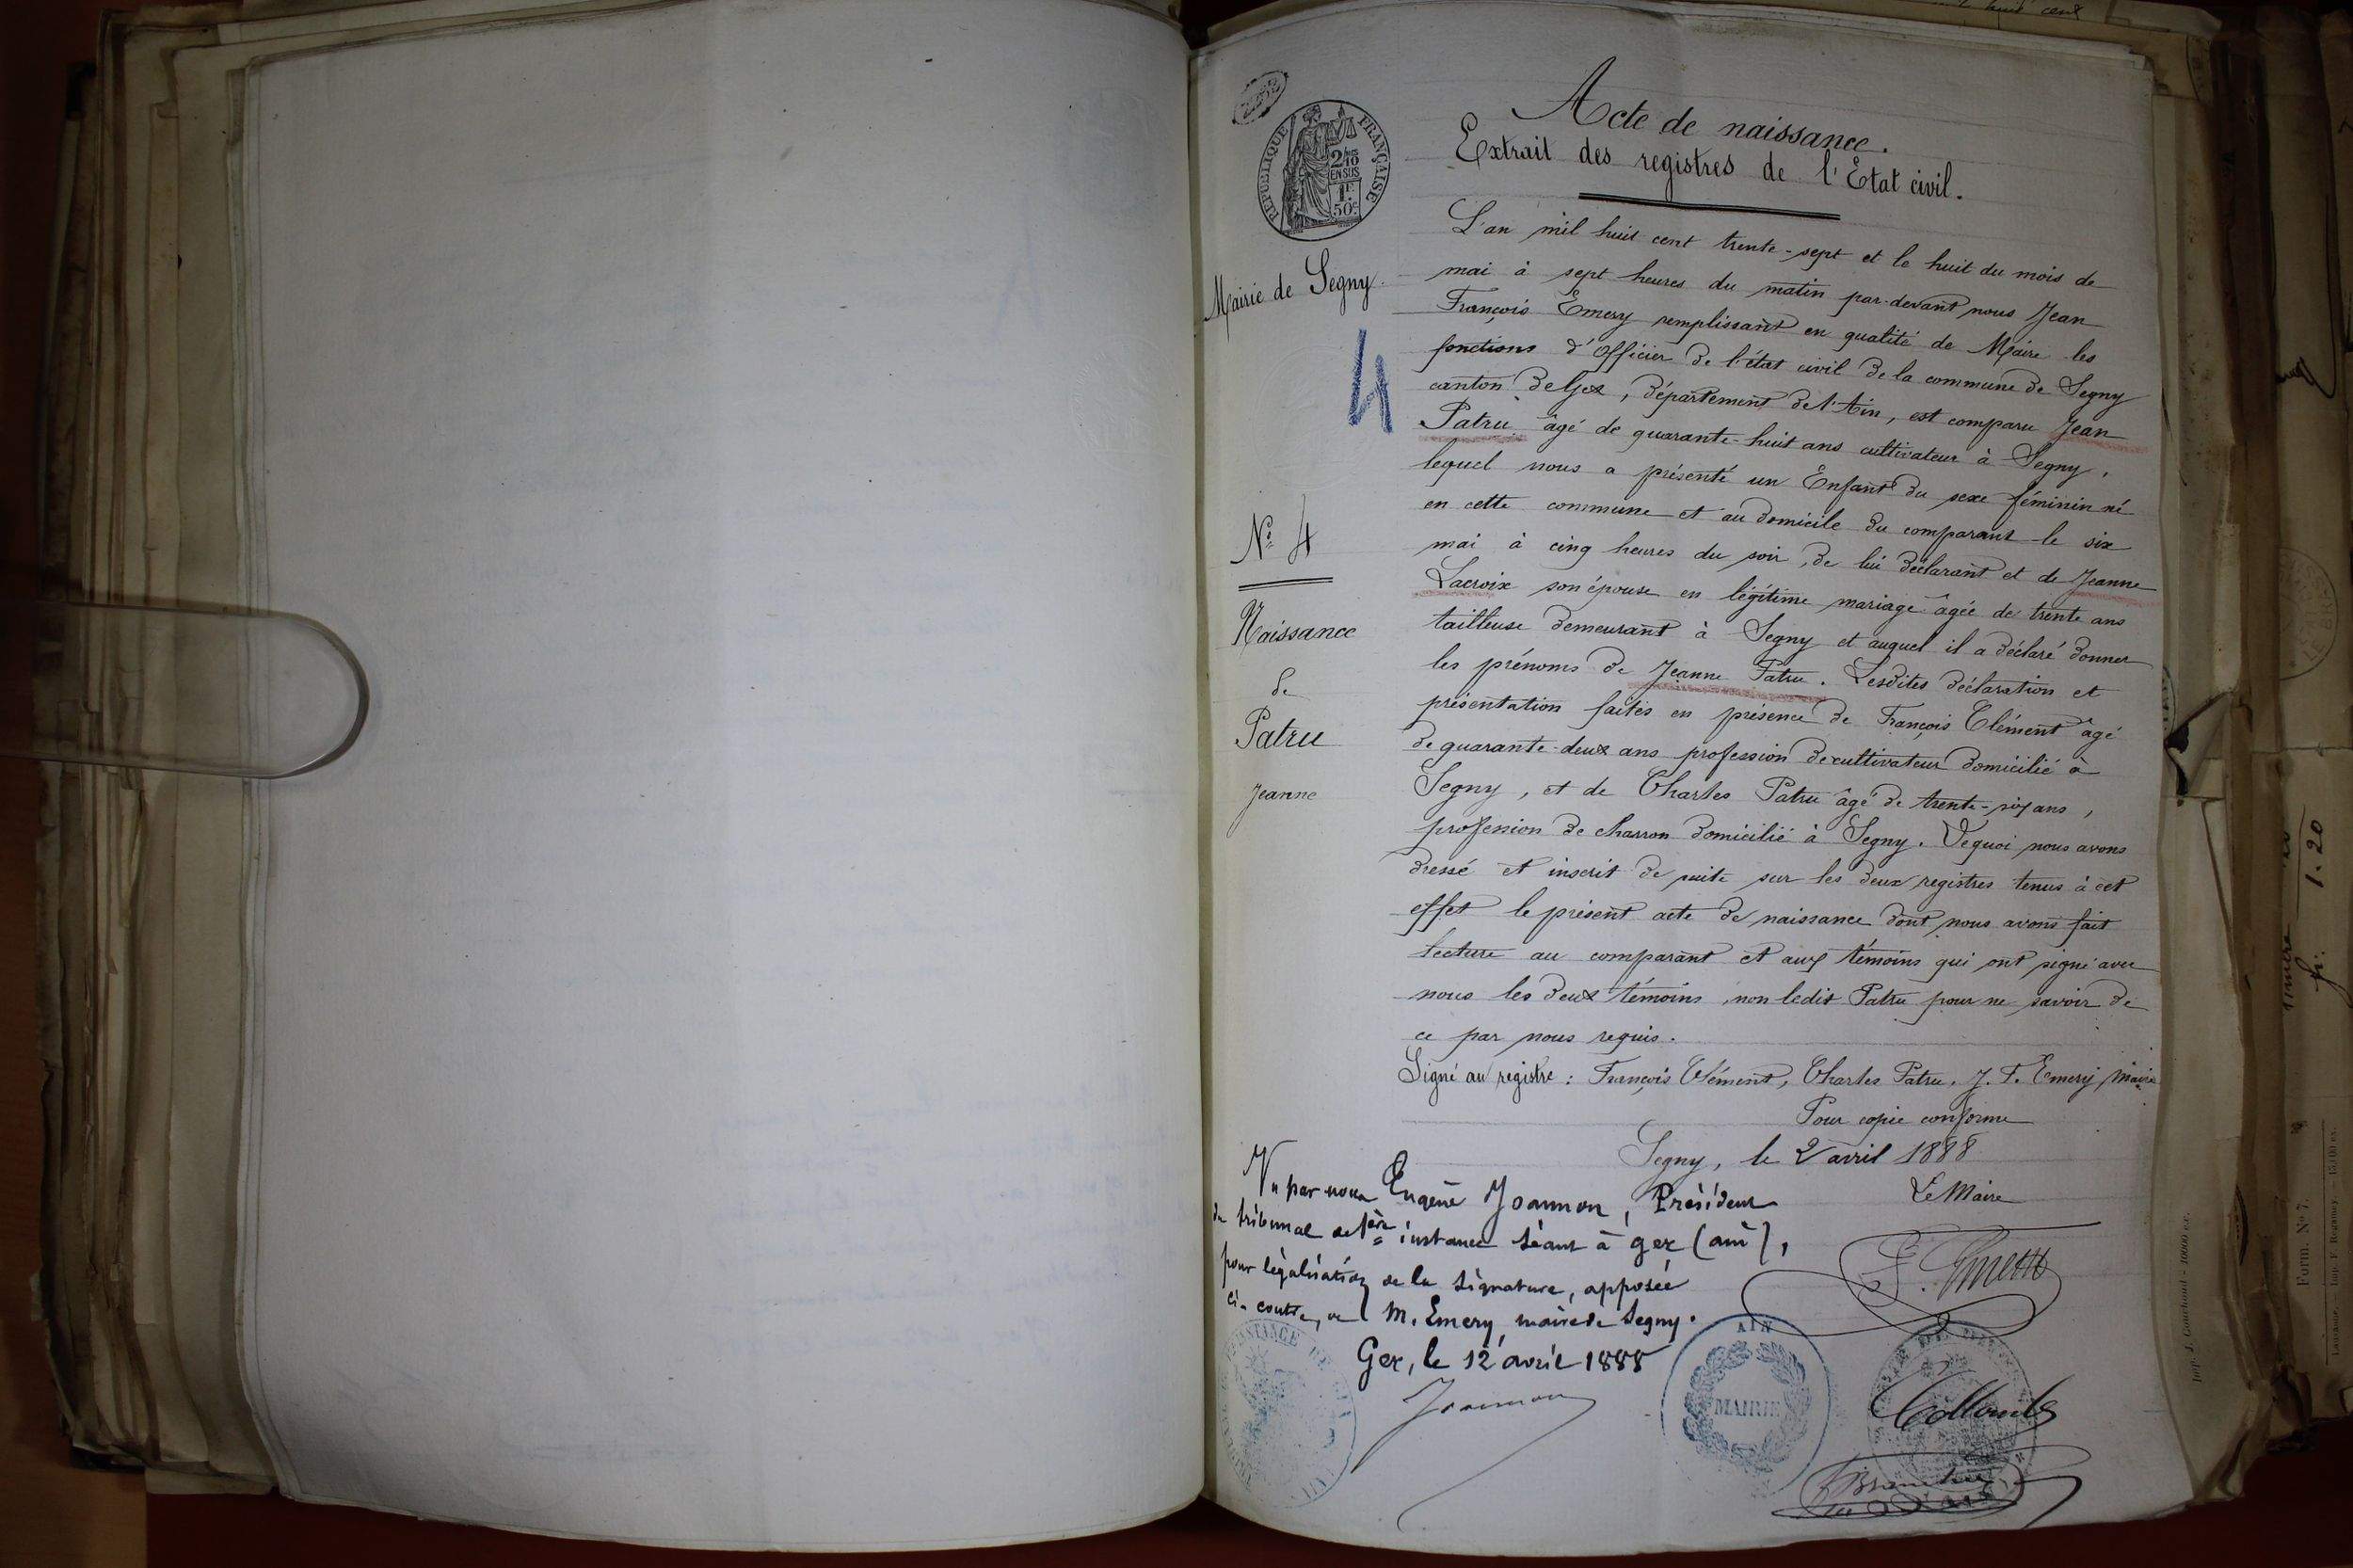 Acte de naissance.
Extrait des registres de l'Etat civil.
RÉPUBLIQUE FRANÇAISE
2/10
EN SUS
1F
50c
Mairie de Segny.
4
N° 4
Naissance
de
Patru
Jeanne
L'an mil huit cent trente-sept et le huit du mois de
mai à sept heures du matin par-devant nous Jean
François Emery remplissant en qualité de Maire les
fonctions d'Officier de l'état civil de la commune de Segny
canton de Gex, département de l'Ain, est comparu Jean
Patru âgé de quarante-huit ans cultivateur à Segny,
lequel nous a présenté un Enfant du sexe féminin né
en cette commune et au domicile du comparant le six
mai à cinq heures du soir, de lui déclarant et de Jeanne
Lacroix son épouse en légitime mariage âgée de trente ans
tailleuse demeurant à Segny et auquel il a déclaré donner
les prénoms de Jeanne Patru. Lesdites déclaration et
présentation faites en présence de François Clément âgé
de quarante-deux ans profession de cultivateur domicilié à
Segny, et de Charles Patru âgé de trente-six ans,
profession de charron domicilié à Segny. De quoi nous avons
dressé et inscrit de suite sur les deux registres tenus à cet
effet le présent acte de naissance dont nous avons fait
lecture au comparant et aux témoins qui ont signé avec
nous les deux témoins, non ledit Patru pour ne savoir de
ce par nous requis.
Signé au registre : François Clément, Charles Patru. J. F. Emery Maire
Pour copie conforme
Segny, le 2 avril 1888
Le Maire
F. Emery
Vu par nous Eugène Joannon, Président
du tribunal de 1ère instance séant à Gex (ain),
pour légalisation de la signature, apposée
ci-contre, de M. Emery, maire de Segny.
Gex, le 12 avril 1888
Joannon
AIN
MAIRIE
fr. 1.20
Form. N° 7.